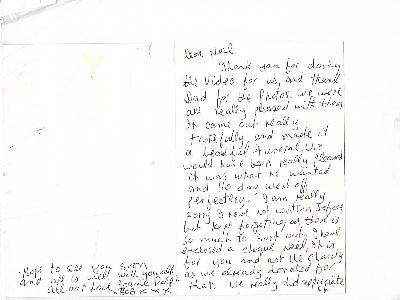 Dear Neil
Thank you for doing
the video for us, and thank
Dad for the Photos. We were
all really pleased with them
It came out really
tastefully and made it
a beautiful funeral. We
would have been really pleased
it was what he wanted
and the day went off
perfectly. I am really
sorry I have not written before
but kept forgetting as there is
so much to sort out. I have
enclosed a cheque Neil, it is
for you and not the charity
as we already donated for
that. We really did appreciate
Hope to see you soon
and all is well with yourself
all our love
xxx